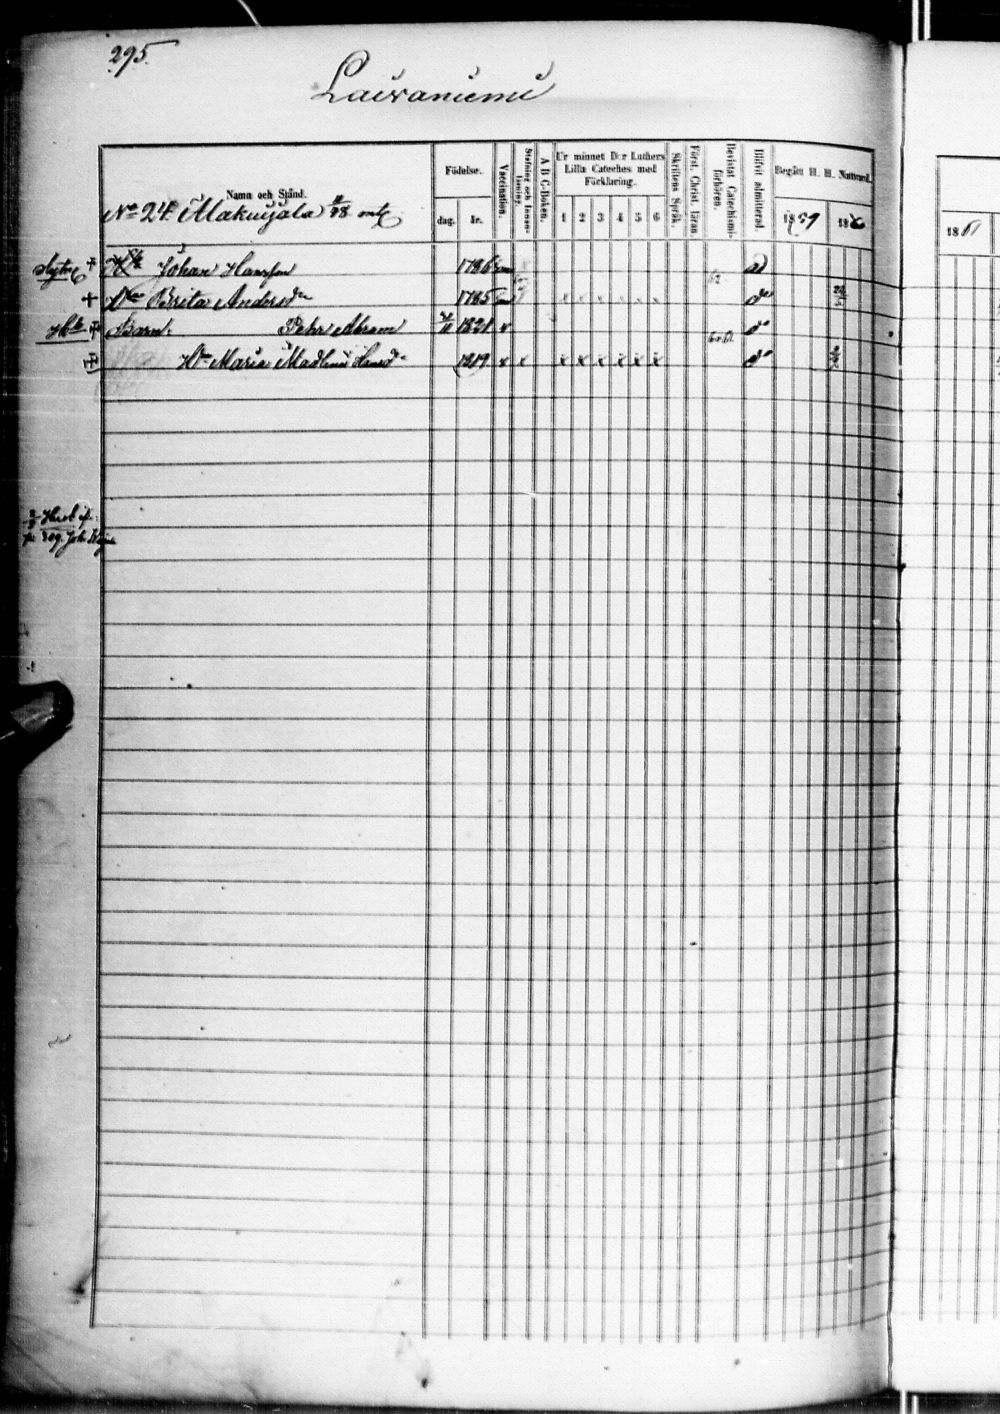 295.
Laivaniemi
Namn och Stånd.
Födelse.
dag. år.
Vaccination.
Stafning och Innan-läsning.
A B C-Boken.
Ur minnet D:r Luthers Lilla Cateches med Förklaring.
1 2 3 4 5 6
Skriftens Språk.
Först. Christ. läran.
Bevistat Catechismi-förhören.
Blifvit admitterad.
Begått H. H. Nattvard.
1859 1860
1861
No 24 Makuujala mtl
Johan Hansson 1786
Brita Andersdr 1785
Barn: Pehr Abram 1821 x
Maria Madlena Hansdr 1819 x x x x x x x x